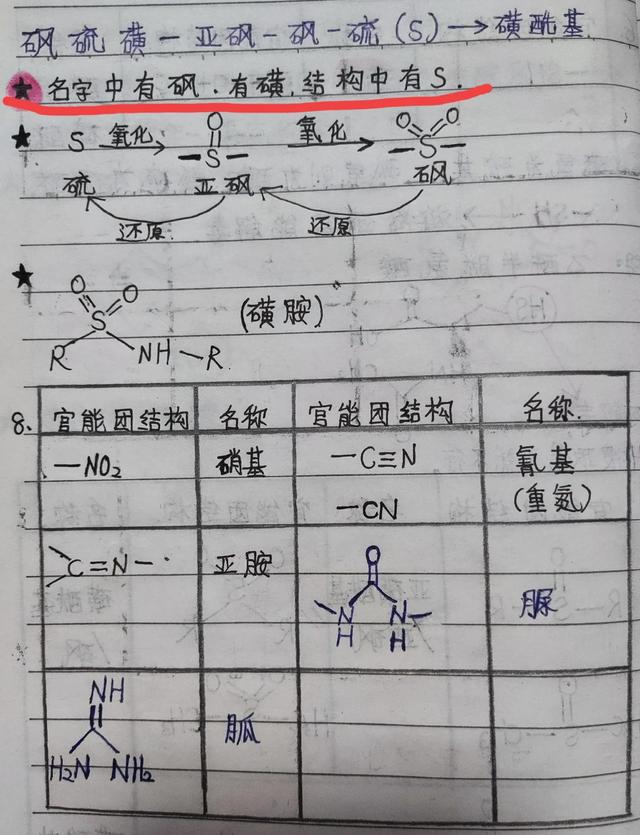 砜 硫 磺 — 亚砜 - 砜 - 硫 (S) → 磺酰基
★ 名字中有砜.有磺,结构中有S.
★ S 氧化→ O 氧化→ O O
S S
硫 亚砜 砜
还原 还原
★ O O
S (磺胺)
R NH—R
8. 官能团结构 名称 官能团结构 名称.
—NO₂ 硝基 —C≡N 氰基
—CN (重氮)
C=N— 亚胺 O 脲
N N
H H
NH
胍
H₂N NH₂